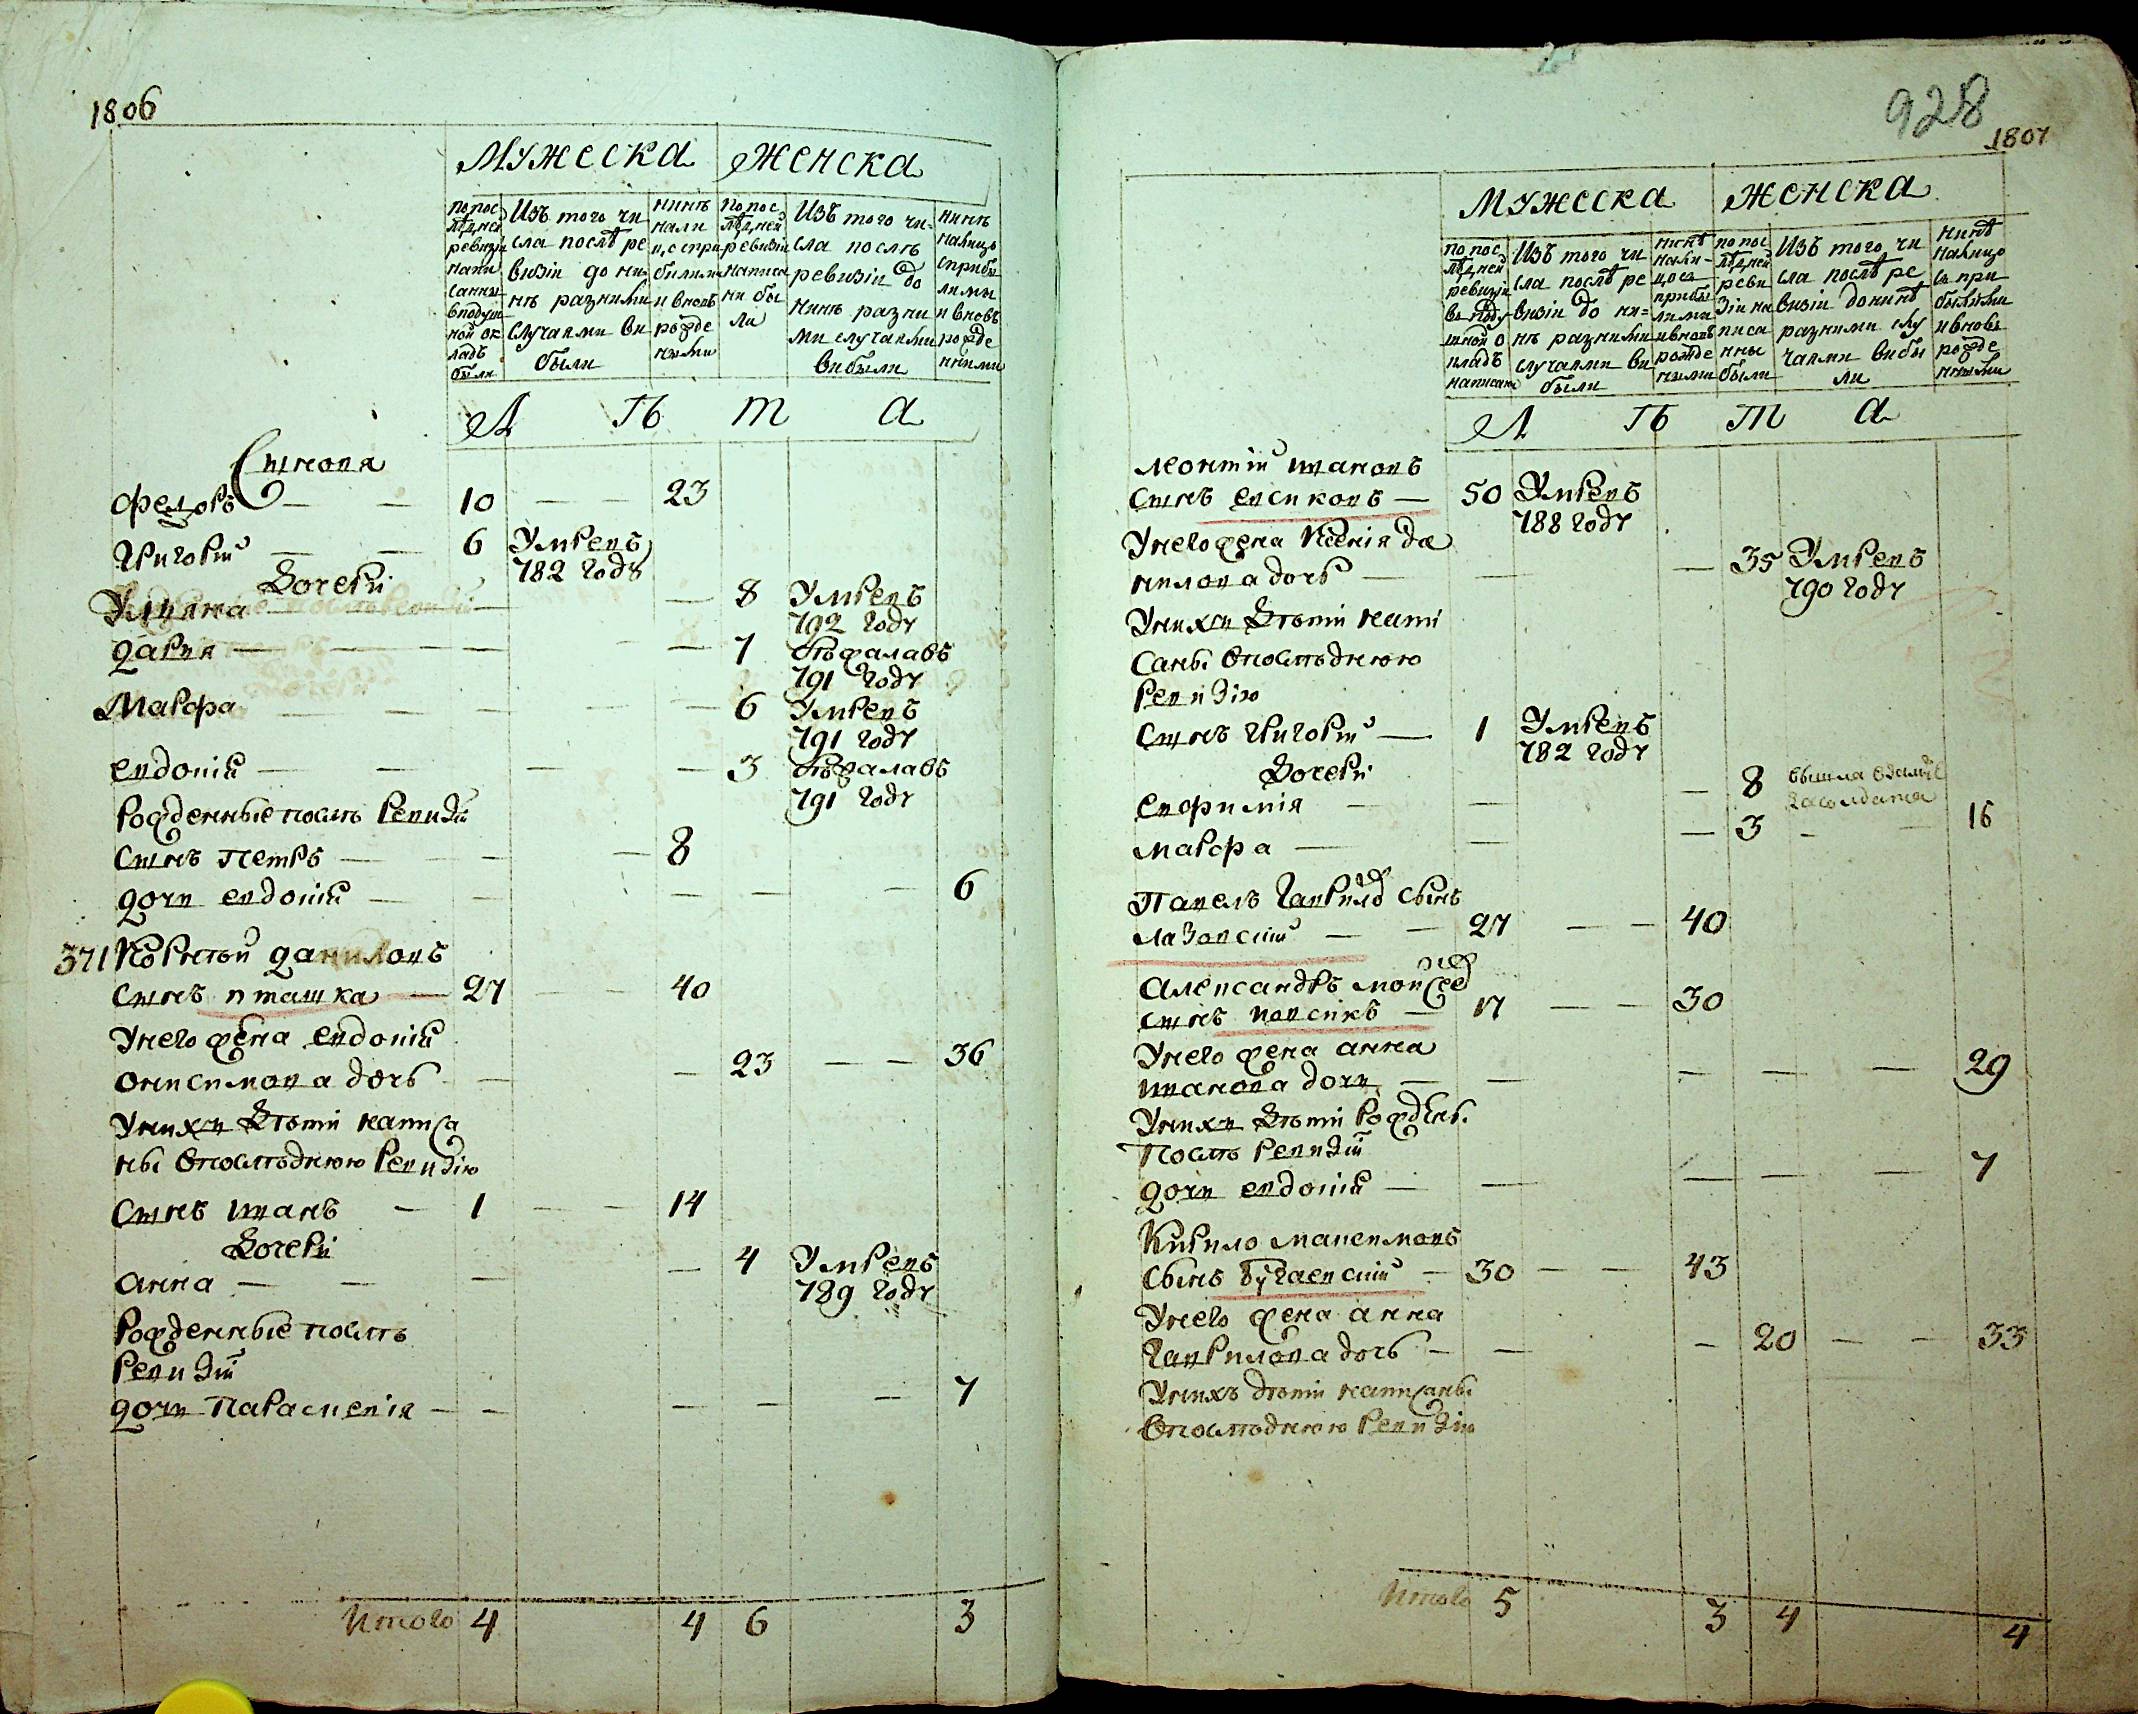 1806
Мужеска Женска
по пос
лѣдней
ревизіи
напи
санны
в подуш
ной ок
ладъ
были
Изъ того чи
сла послѣ ре
визіи до ни
нѣ разними
случаями ви
были
нинѣ
нали
ц, с при
билими
и вновь
рожде
нными
по пос
лѣдней
ревизіи
написа
ни бы
ли
Изъ того чи-
сла послѣ
ревизіи до
нинѣ разни
ми случаями
вибыли
нинѣ
налицо
с прибы
лимы
и вновь
рожде
нними
Л Ѣ т а
Сыновя
Федоръ — — 10 — — 23
Григорій — — 6 Умревъ
782 году
Дочери
Улияна — — — 8 Умревъ
792 году
Дария — — — — 7 Отдалавъ
791 году
Марфа — — — — 6 Умревъ
791 году
Евдокій — — — — 3 Отдалавъ
791 году
Рожденные послѣ Ревизій
Сынъ Петръ — — — 8
дочи Евдокій — — — — — 6
371 Корнѣй Даниловъ
Сынъ Пташка — 27 — — 40
У него жена Евдокий
Онисимова дочь — — 23 — — 36
У них дѣтій написа
ны в послѣднюю Ревизію
Сынъ Иванъ — 1 — — 14
Дочери
Анна — — — — 4 Умревъ
789 году
Рожденные послѣ
Ревизій
дочи Параскевія — — — — — 7
Итого 4 4 6 3
928
1807
Мужеска Женска
по пос
лѣдней
ревизіи
в поду
шной о
кладъ
написан
Изъ того чи
сла послѣ ре
визіи до ни=
нѣ разними
случаями ви
были
нинѣ
нали-
цо съ
прибы
лими
и вновь
рожде
ными
по пос
лѣдней
реви
зіи на
писа
нны
были
Изъ того чи
сла послѣ ре
визіи до нинѣ
разними слу
чаями вибы
ли
нинѣ
налицо
съ при
былими
и вновь
рожде
нными
Л Ѣ т а
Леонтій Ивановъ
Сынъ Евсиковъ — 50 Умревъ
788 году
У него жена Ксенія Да
нилова дочь — — — 35 Умревъ
790 году
У них дѣтій напи
саны в послѣднюю
Ревизію
Сынъ Григорій — 1 Умревъ
782 году
Дочери
Евфимія — — — 8 вышла
за солдата
Марфа — — — 3 — — 16
Павелъ Гаврилов Сынъ
Лазовский — — 27 — — 40
Александръ Моисеев
Сынъ — 17 — — 30
У него жена Анна
Иванова дочи — — — — — 29
У них дѣтій Рожден.
Послѣ Ревизій
дочи Евдокий — — — — — 7
Кирило Макеимовъ
Сынъ Бугаевский — 30 — — 43
У него жена Анна
Гаврилова дочь — — — 20 — — 33
У нихъ дѣтій написаны
в послѣднюю Ревизію
Итого 5 3 4 4